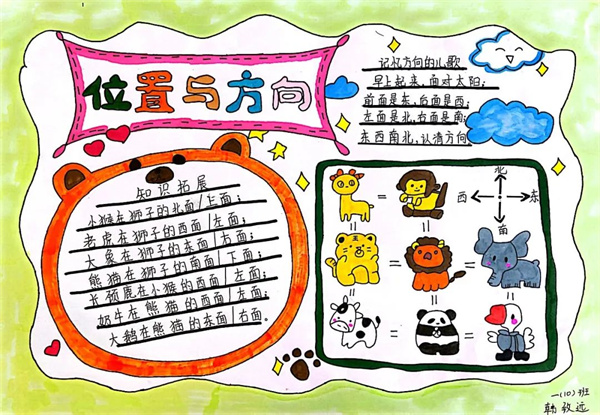 位置与方向
记忆方向的儿歌
早上起来,面对太阳;
前面是东,后面是西;
左面是北,右面是南;
东西南北,认清方向。
知识拓展
小猴在狮子的北面/上面;
老虎在狮子的西面/左面;
大象在狮子的东面/右面;
熊猫在狮子的南面/下面;
长颈鹿在小猴的西面/左面;
奶牛在熊猫的西面/左面;
大鹅在熊猫的东面/右面。
北
西
东
南
一(10)班
韩致远